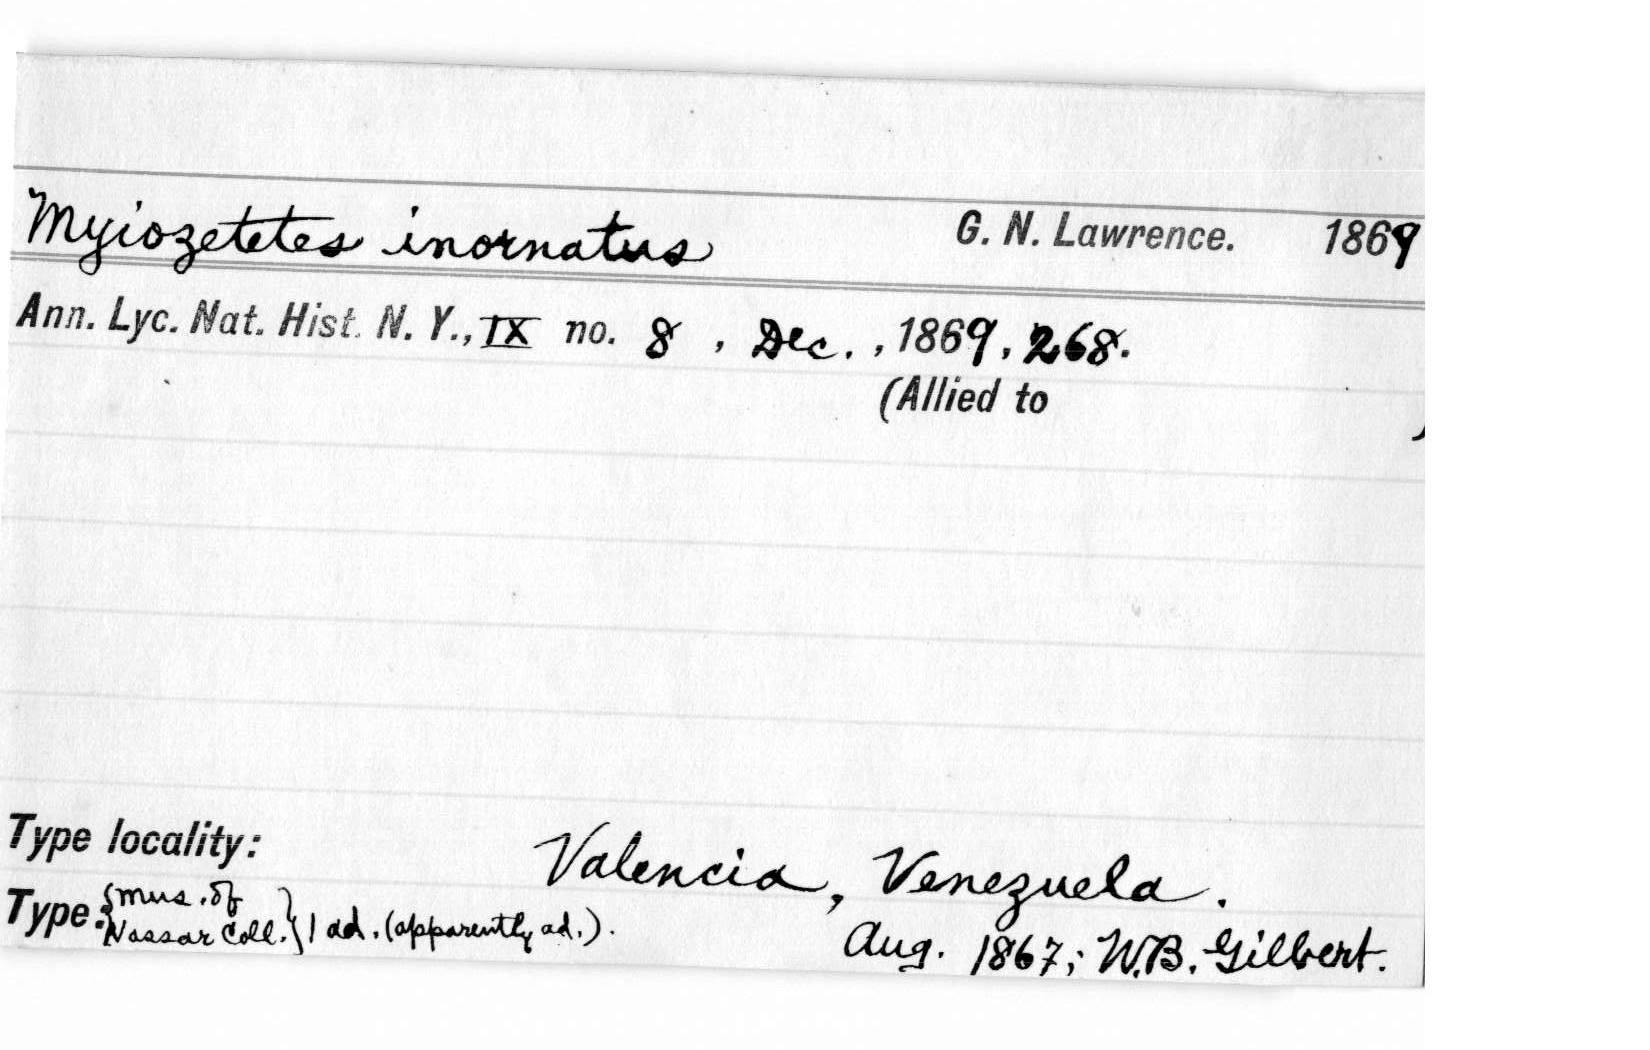 Myiozetetes inornatus G. N. Lawrence. 1869
Ann. Lyc. Nat. Hist. N. Y., IX no. 8, Dec., 1869, 268.
(Allied to )
Type locality: Valencia, Venezuela.
Type: {Mus. of Vassar Coll.} 1 ad. (apparently ad.).
Aug. 1867; W.B. Gilbert.